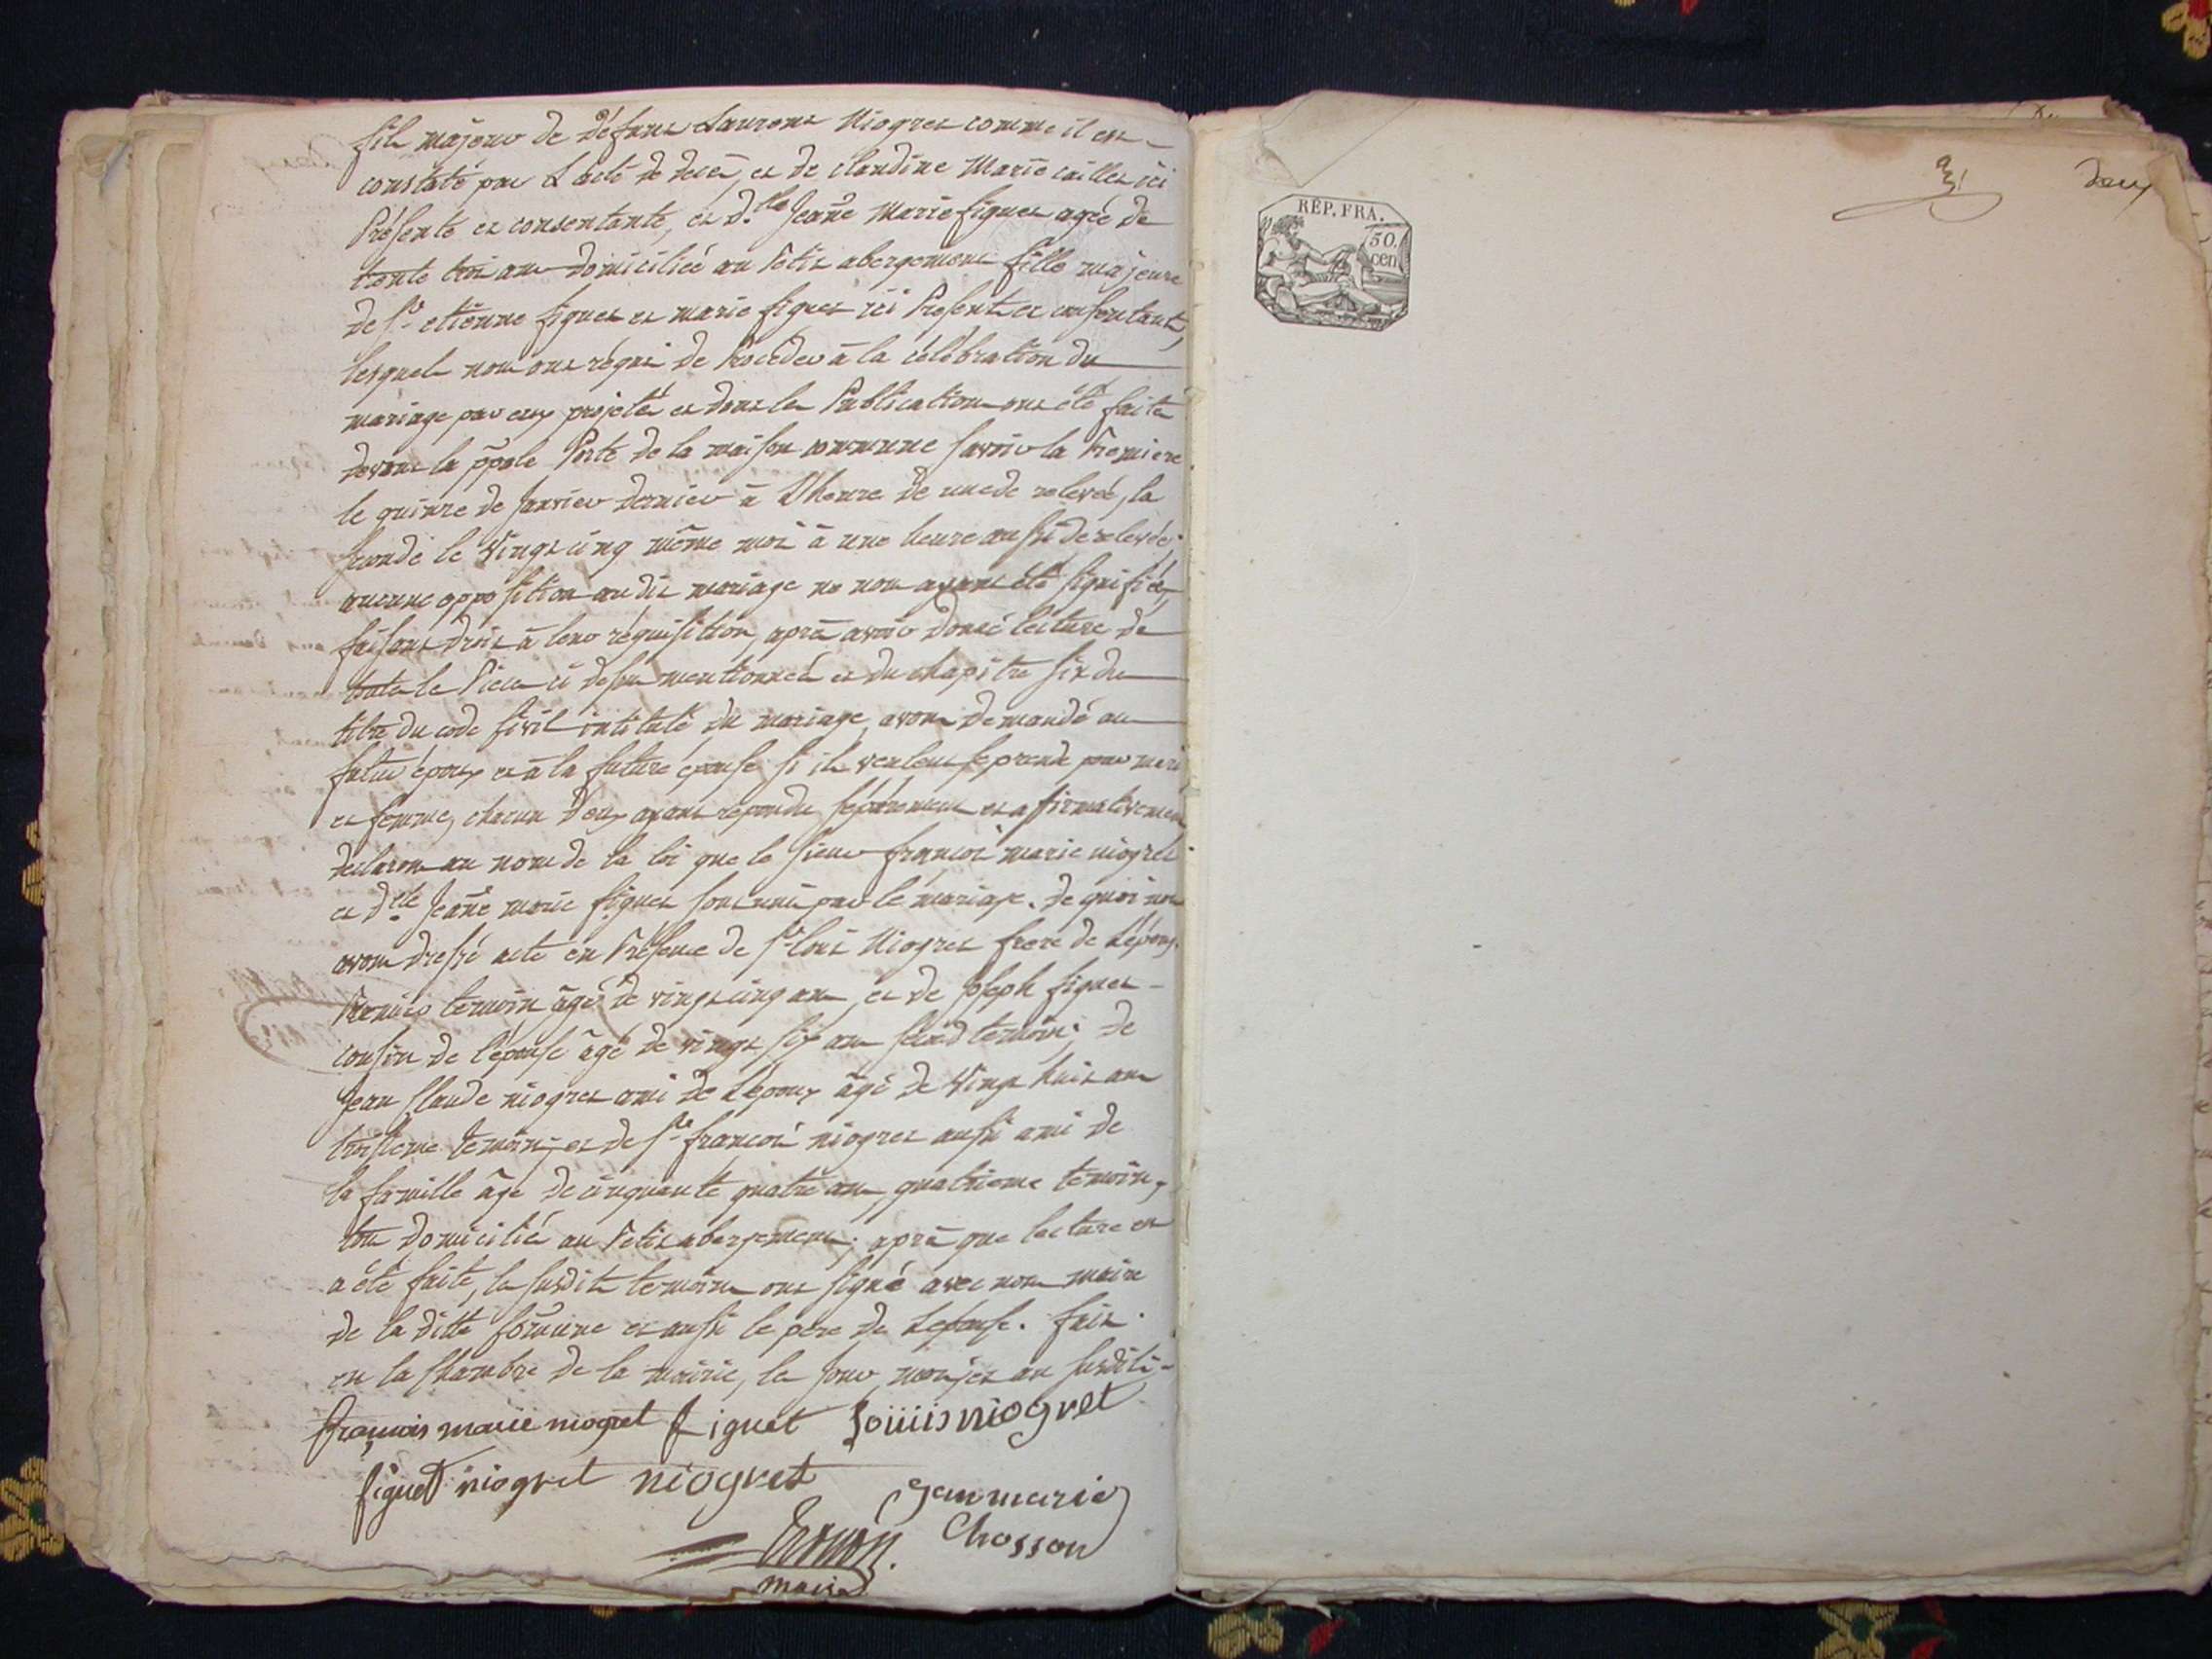 fils majeur de défunt Laurent Niogret comme il est
constaté par L'acte de décès, et de claudine Marie caillet ici
Présente et consentante, et d.lle Jeane Marie figuet agée de
trente trois ans domiciliée au Petit abergement fille majeure
de Sr. etienne figuet et marie figuet ici Présents et consentants,
lesquels nous ont réquis de Procéder à la célébration du
mariage par eux projetés et dont les Publications ont été faites
devant la ppale Porte de la maison commune savoir la Premiere
le quinze de Janvier dernier à L'heure de une de relevée, la
seconde le Vingt cinq même mois à une heure aussi de relevée.
aucune opposition au dit mariage ne nous ayant été signifiée,
faisant droit à leur réquisition, après avoir donné lecture de
toutes les Pieces ci dessus mentionnées et du chapitre six du
titre du code Sivil intitulé du mariage, avons demandé au
futur époux et à la future épouse si ils veulent se prendre pour mari
et femme, chacun d'eux ayant repondu séparément et affirmativement
declarons au nom de la loi que le Sieur françois marie niogret
et d.lle Jeane marie figuet sont unis par le mariage. de quoi nous
avons dressé acte en Présence de Sr. louis Niogret frere de L'époux
Premier temoin âgé de vingt cinq ans, et de Joseph figuet
cousin de l'épouse âgé de vingt six ans second temoin; de
Jean Claude niogret ami de L'époux âgé de Vingt huit ans
troisieme temoin, et de Sr. françois niogret aussi ami de
la famille âgé de cinquante quatre ans, quatrieme temoin,
tous domiciliés au Petit abergement; après que lecture en
a été faite, les susdits temoins ont signé avec nous maire
de la ditte Comune et aussi le pere de L'épouse. fait
en la Chambre de la mairie, les jour, mois, et an susdits
françois marie niogret figuet Louiis niogret
figuet niogret niogret Jean marie
Chosson
maire
RÉP. FRA.
50.
cen
deux